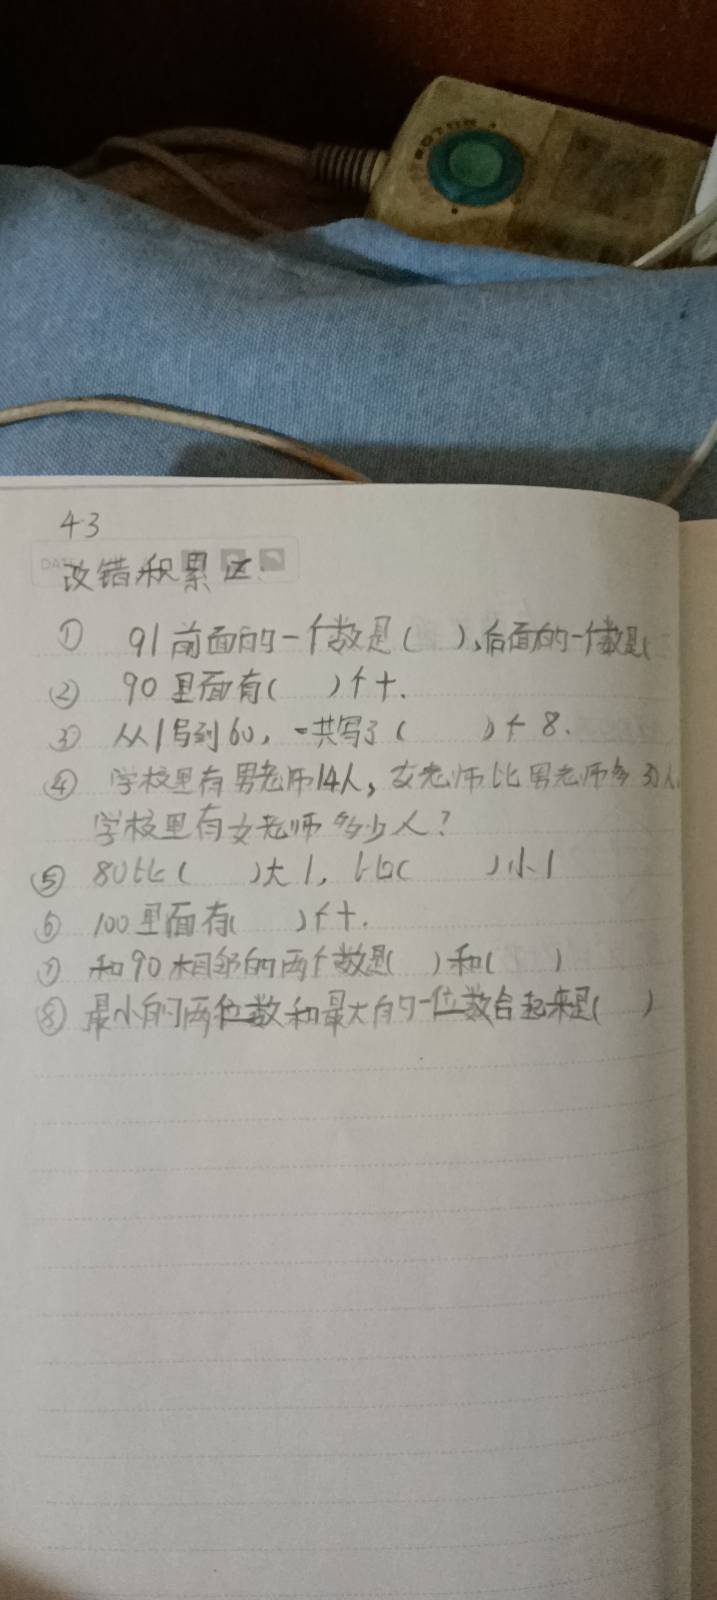 43
DATE
改错积累区
① 91前面的一个数是( ),后面的一个数是(
② 90里面有( )个十.
③ 从1写到60, 一共写了( )个8.
④ 学校里有男老师14人, 女老师比男老师多 人
学校里有女老师多少人?
⑤ 80比( )大1, 比( )小1
⑥ 100里面有( )个十.
⑦ 和90相邻的两个数是( )和( )
⑧ 最小的两位数和最大的一位数合起来是( )